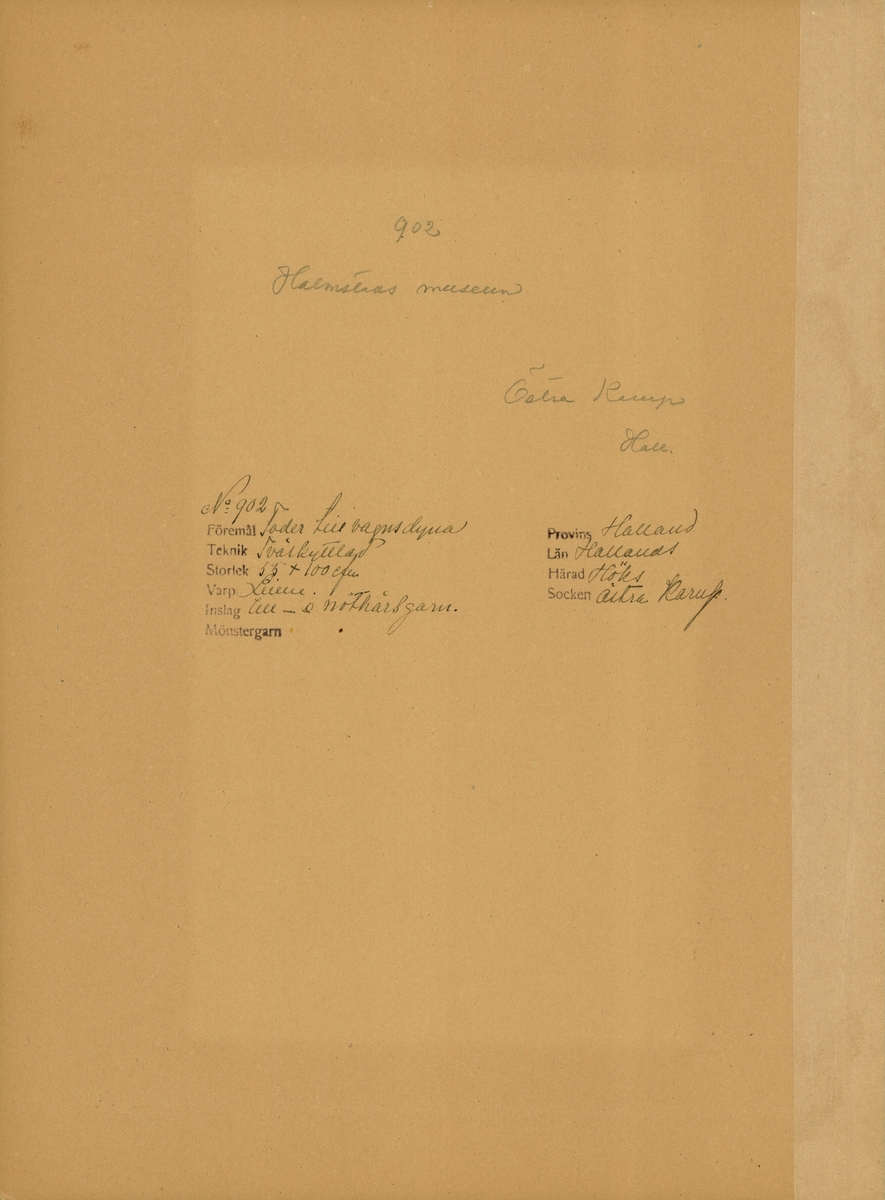 902
Halmstads museum
Östra Karup
Hall.
No 902
Föremål Foder till vagnsdyna
Teknik Tvåskyttlad
Storlek 55 + 100 cfm.
Varp Linne.
Inslag Ull – o nöthårsgarn.
Mönstergarn
Provins Halland
Län Hallands
Härad Höks
Socken Östra Karup.